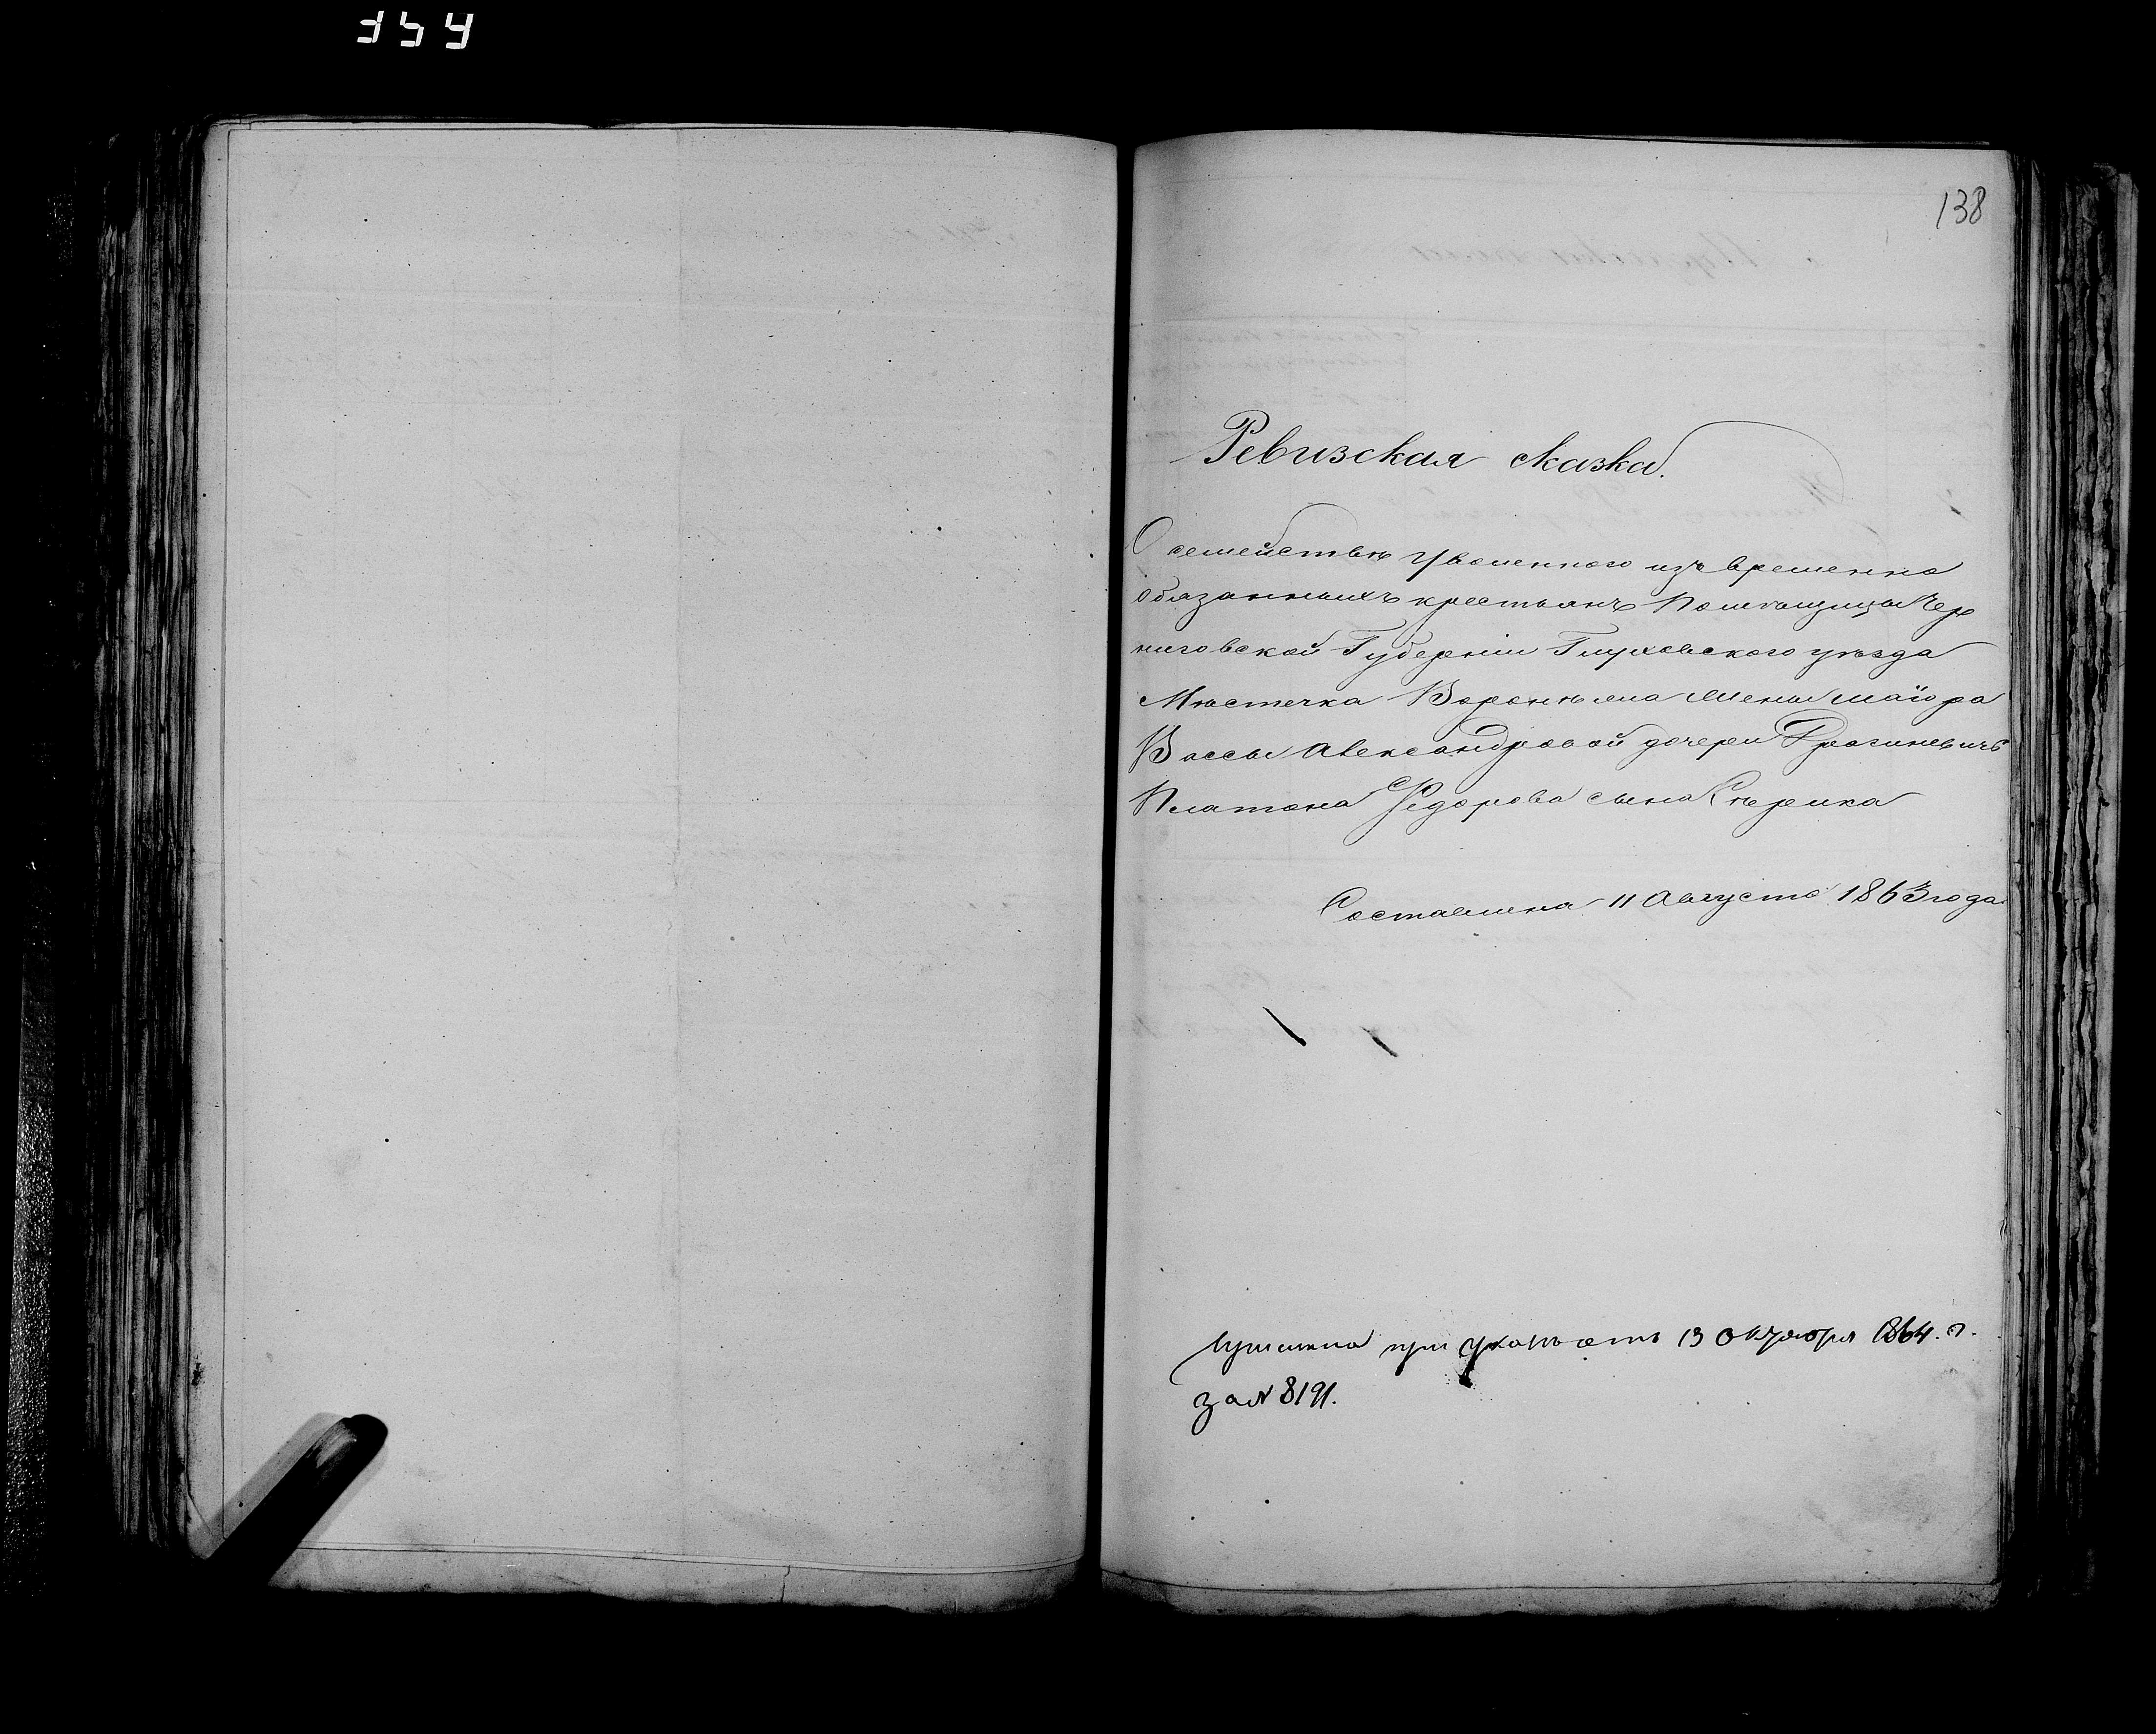 138
Ревизская сказка.
О семействѣ уволенного изъ временно
обязанныхъ крестьянъ Помѣщицы Чер
ниговской Губерніи Глуховского уѣзда
Мѣстечка Воронѣжа жены маіора
Вассы Александровой дочери
Платона Федорова сына Сѣрика
Составлена 11 Августа 1863 года
при указѣ отъ 13 Октября 1864. г.
за № 8191.